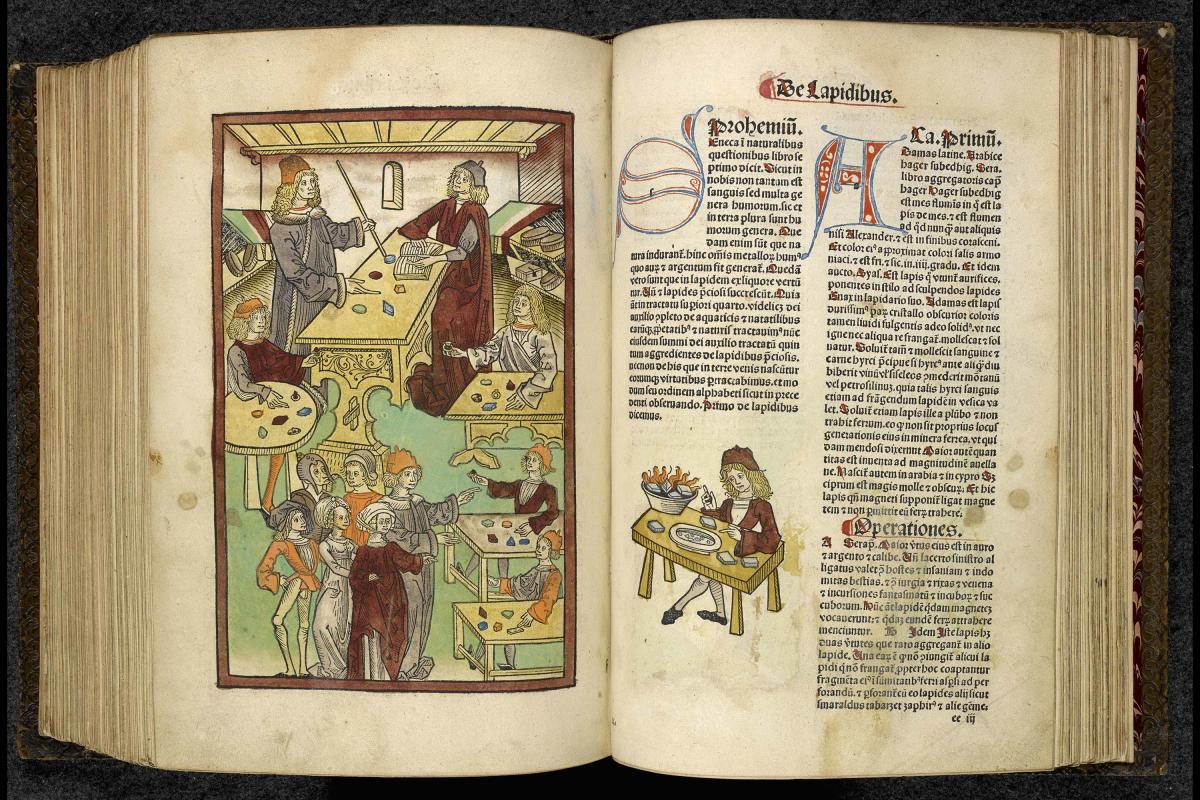 De Lapidibus.
Prohemiū.
Seneca ī naturalibus
questionibus libro se
ptimo dicit. Sicut in
nobis non tantam est
sanguis sed multa ge
nera humorum. sic et
in terra plura sunt hu
morum genera. Que
dam enim sūt que na
tura indurant. hinc om̄is metalloꝝ humꝰ
quo auꝝ ⁊ argentum fit generat̄. Quedā
vero sunt que in lapidem ex liquore vertū
tur. Un̄ ⁊ lapides p̄ciosi succrescūt. Quia
in tractatu supiori quarto. videlicꝫ dei
auxilio ꝯpleto de aquaticis ⁊ natatilibus
tractauimꝰ nūc
eiusdem summi dei auxilio tractatū quin
tum aggredientes de lapidibus p̄ciosis.
necnon de his que in terre venis nascūtur
eorumqꝫ virtutibus ꝑtractabimus. et mo
dum seu ordinem alphabeti sicut in prece
denti obseruando. Primo de lapidibus
dicemus.
Ca. Primū.
Adamas latine. Arabice
hager subedhig. Sera.
libro aggregatoris cap̄
hager Hager subedhig
est mes flumīs in q̄ est la
pis de mes. ⁊ est flumen
ad qd̄ nunqꝫ aut aliquis
nisi Alexander. ⁊ est in finibus coraseeni.
Et color eiꝰ aproximat colori salis armo
niaci. ⁊ est fri. ⁊ sic. in. iiij. gradu. Et idem
aucto. Ayas. Est lapis q̄ vtunt̄ aurifices.
ponentes in stilo ad sculpendos lapides
Enax in lapidario suo. Adamas est lapis
durissimꝰ paꝝ cristallo obscurior coloris
tamen liuidi fulgentis adeo solidꝰ. vt nec
igne nec aliqua re frangat̄. mollescat ⁊ sol
uatur. Soluit̄ tam̄ ⁊ mollescit sanguine ⁊
carne hyrci p̄cipue si hyrcꝰ ante aliqͣdiu
biberit vinū vl̓ sileos ꝯmederit mōtanū
vel petrosilinū. quia talis hyrci sanguis
etiam ad frāgendum lapidem in vesica va
let. Soluit̄ etiam lapis ille a plūbo ⁊ non
trahit ferrum. eo q̄ non sit proprius locus
generationis eius in minera ferrea. vt qui
dam mendosi dixerunt. Maior autē quan
titas est inuenta ad magnitudinē auella
ne. Nascit̄ autem in arabia ⁊ in cypro. Sꝫ
ciprum est magis molle ⁊ obscuꝝ. Et hic
lapis qn̄ magneti supponit̄ ligat magne
tem ⁊ non ꝑmittit eū ferꝝ trahere.
Operationes.
A Serap. Maior v̓tus eius est in auro
⁊ argento ⁊ calibe. Un̄ lacerto sinistro al
ligatus valet ꝯ hostes ⁊ insaniam ⁊ indo
mitas bestias. ⁊ ꝯ iurgia ⁊ rixas ⁊ venena
⁊ incursiones fantasmatū ⁊ incuboꝝ ⁊ suc
cuborum. Hūc aūt lapidē qͥdam magnetez
vocauerunt. ⁊ qͥdaꝫ eundē ferꝝ attrahere
menciuntur. B Idem Iste lapis hꝫ
duas v̓tutes que raro aggregant̄ in alio
lapide. Una eaꝝ ē q̓ nō ꝯiungit̄ alicui la
pidi qͥ nō frangat̄. ꝓpter hoc coaptantur
fragmēta eiꝰ ī sūmitatibꝰ ferri asꝑsi ad per
forandū. ⁊ ꝑforant̄ cū eo lapides alij sicut
smaraldus tabarzet zaphirꝰ ⁊ alie gēme.
ee iij